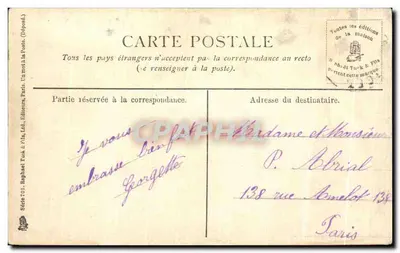 CARTE POSTALE
Tous les pays étrangers n'acceptent pas la correspondance au recto
(se renseigner à la poste).
Toutes les éditions
de la maison
Raphael Tuck & Fils
portent cette marque
Partie réservée à la correspondance.
Adresse du destinataire.
Je vous
embrasse bien fort
Georgette
Madame et Monsieur
P. Abrial
138 rue Amelot 138
Paris
Raphael Tuck & Fils, Ltd., Editeurs, Paris.